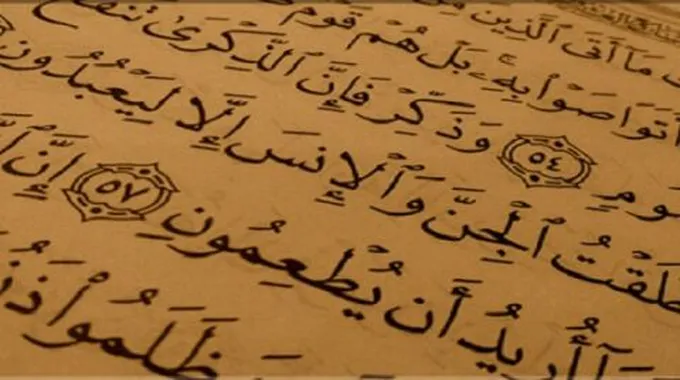 مَآ أَتَى ٱلَّذِينَ مِن
أَتَوَاصَوْا۟ بِهِۦۚ بَلْ هُمْ قَوْمٌ
وَذَكِّرْ فَإِنَّ ٱلذِّكْرَىٰ تَنفَعُ ٥٤
خَلَقْتُ ٱلْجِنَّ وَٱلْإِنسَ إِلَّا لِيَعْبُدُونِ
أُرِيدُ أَن يُطْعِمُونِ ٥٧ إِنَّ
ظَلَمُوا۟